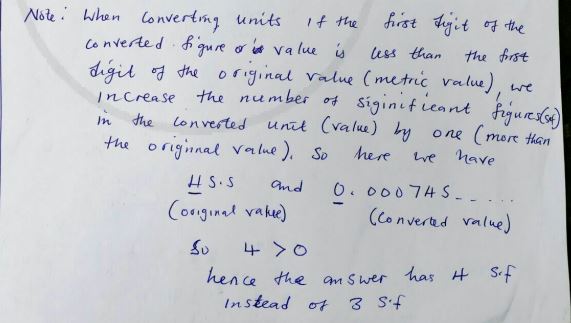 Note: When Converting units if the first digit of the
converted figure or value is less than the first
digit of the original value (metric value), we
increase the number of siginificant figures (sf)
in the converted unit (value) by one (more than
the original value). So here we have
45.5 and 0.000745.......
(original value) (converted value)
So 4 > 0
hence the answer has 4 s.f
instead of 3 s.f